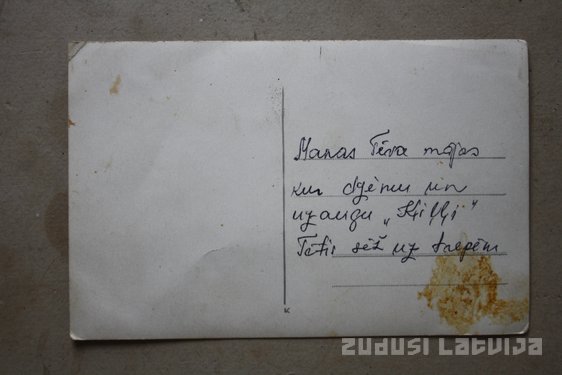 Manas Tēva mājas
kur dzēmu un
uzaugu „Ķiļļi"
Tētis sēž uz trepēm
ZUDUSI LATVIJA